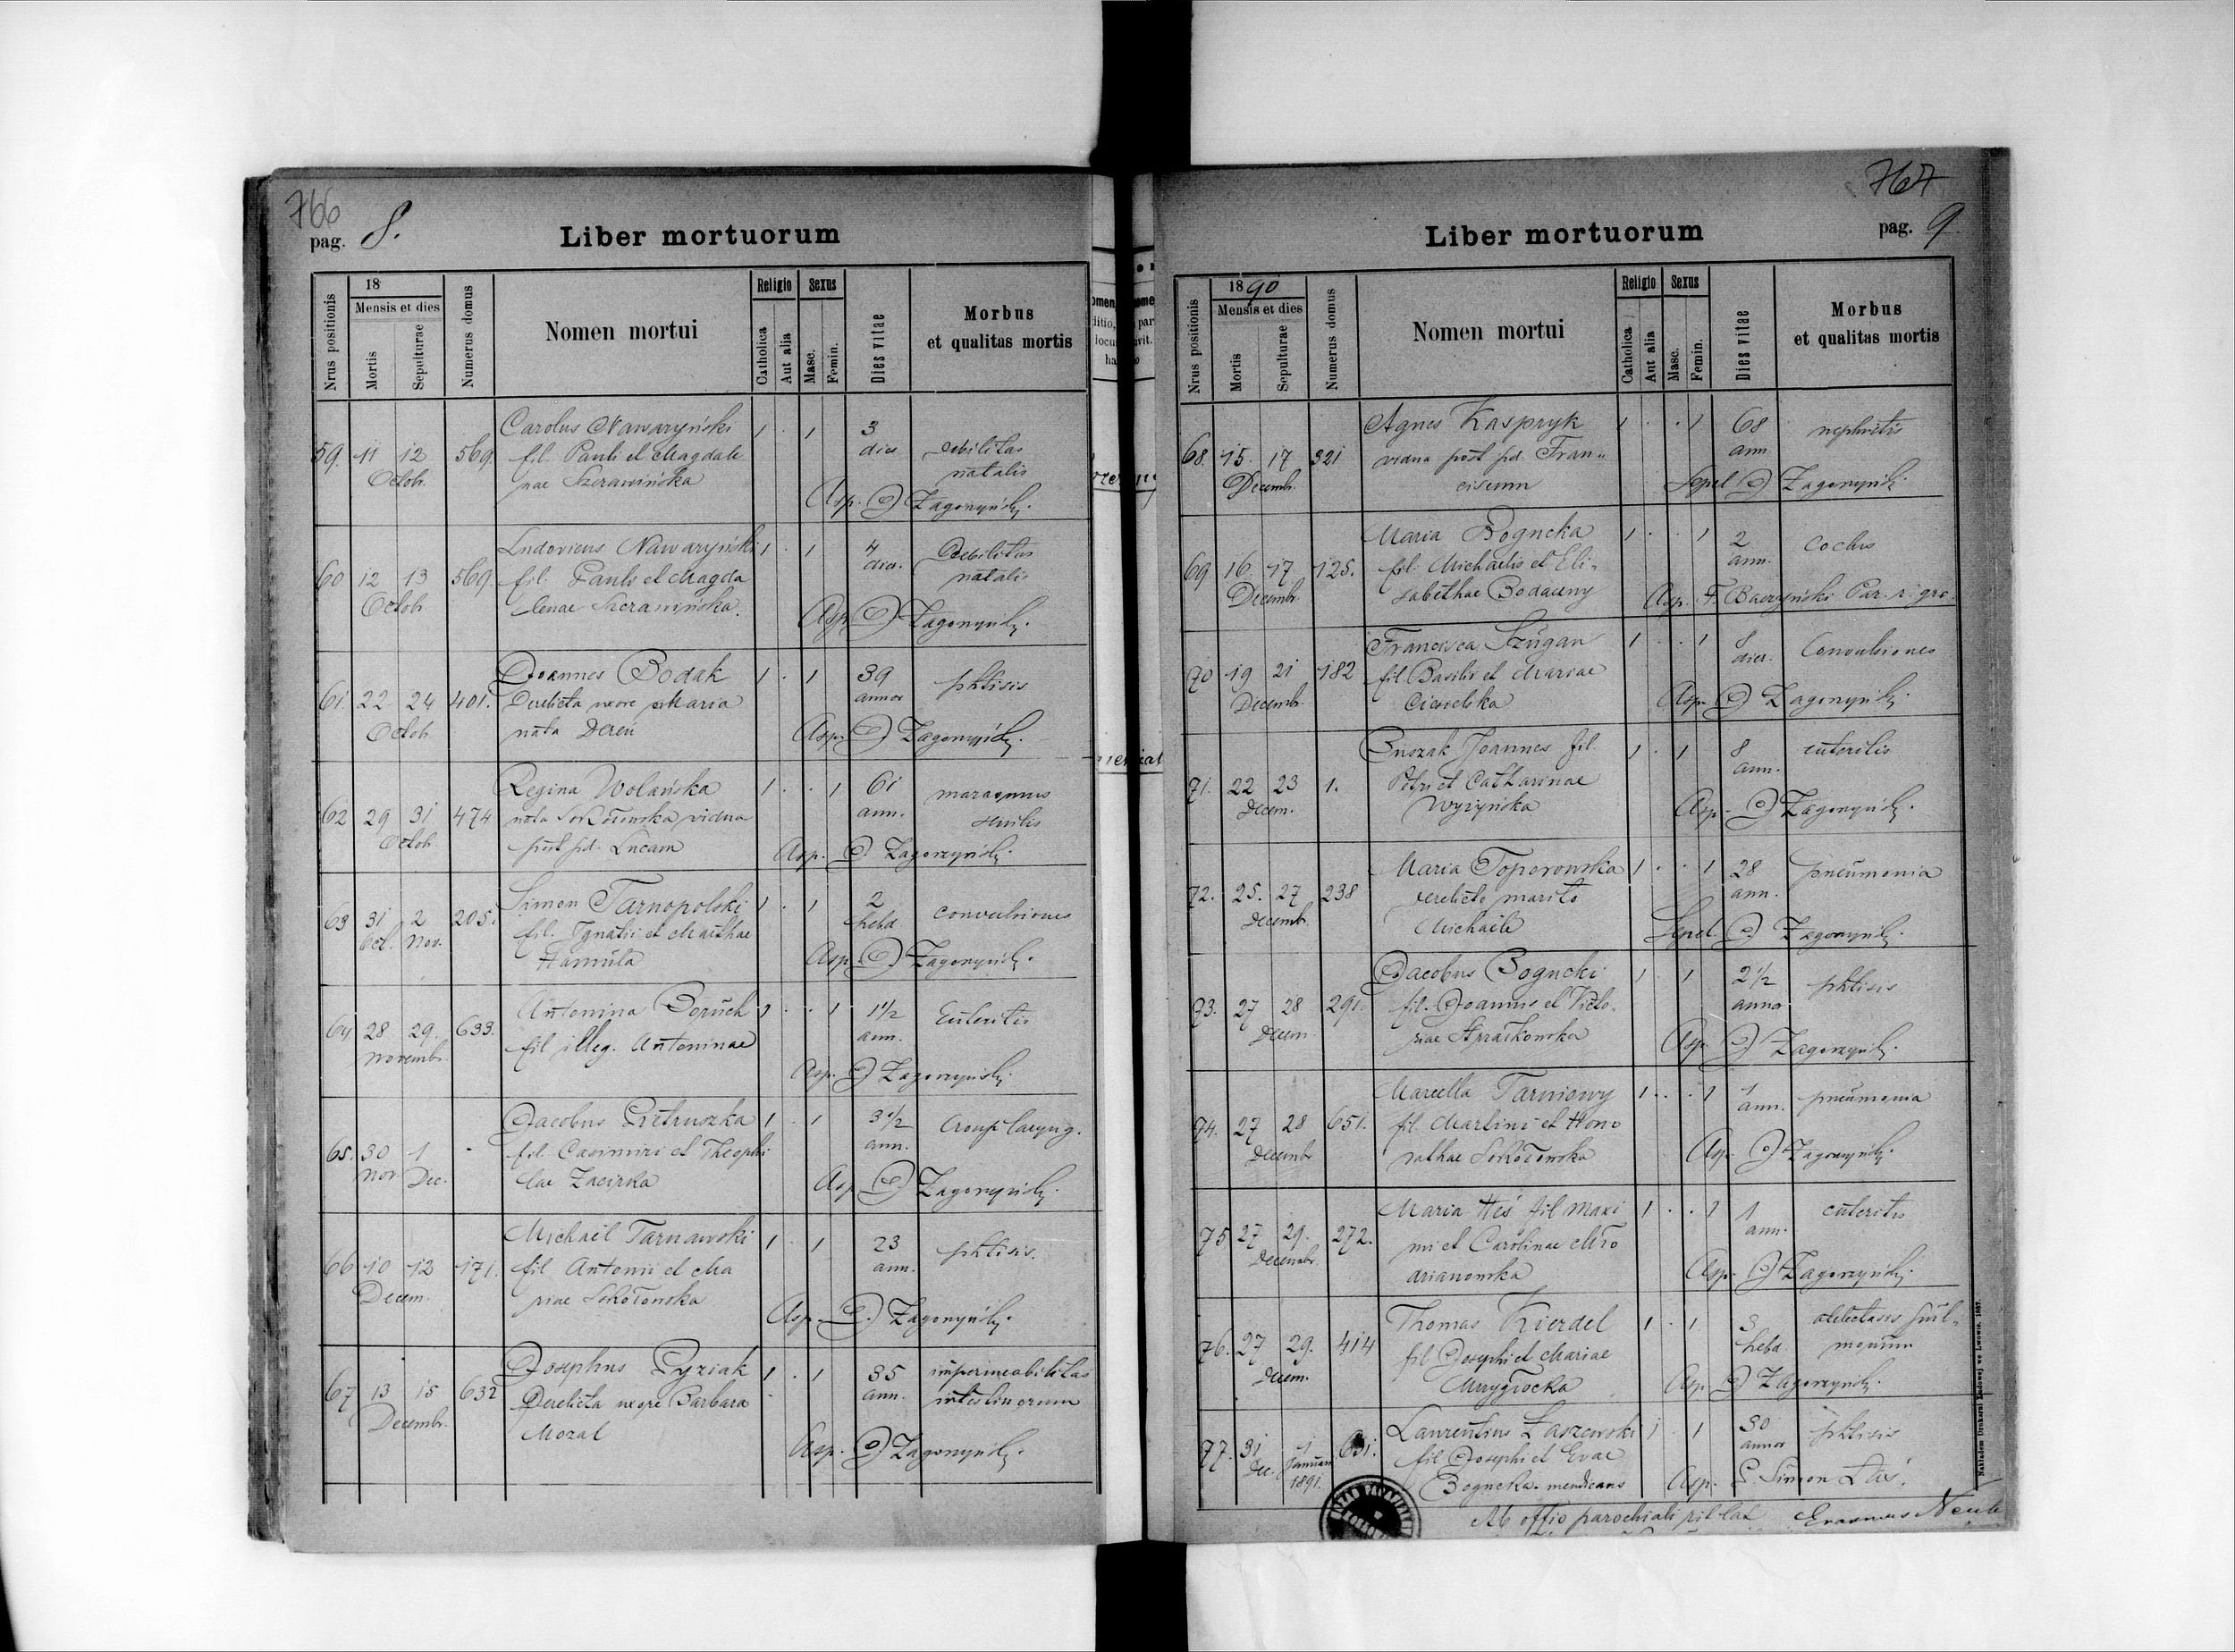 766
pag. 8.
Liber mortuorum
Nrus positionis
18
Mensis et dies
Mortis
Sepulturae
Numerus domus
Nomen mortui
Religio
Catholica
Aut alia
Sexus
Masc.
Femin.
Dies vitae
Morbus
et qualitas mortis
59. 11 12 569. Carolus Nawaryński 1 · 1 3
Octob. fil. Pauli et Magdale dies debilitas
nae Szerawińska natalis
Asp. Zagorzyński.
60 12 13 569. Ludovicus Nawaryński 1 · 1 4 Debilitas
Octob. fil. Pauli et Magda dies. natalis
lenae Szerawińska.
Asp. Zagorzyński.
61. 22 24 401. Joannes Bodak 1 · 1 39 phtisis
Octob Derelicta uxore Maria annor
nata Dereń
Asp. Zagorzyński.
62 29 31 474 Regina Wolańska 1 · · 1 61 marasmus
Octob. nata Sokołowska vidua ann. senilis
post pd. Lucam
Asp. Zagorzyński.
63 31 2 205. Simon Tarnopolski 1 · 1 2 convulsiones
Oct. Nov. fil. Ignatii et Marthae hebd
Hamuła
Asp. Zagorzyński.
64 28 29. 633. Antonina Boruch 1 · · 1 1 1/2 Enteritis
Novembr. fil illeg. Antoninae ann.
Asp. Zagorzyński.
65. 30 1 - Jacobus Pietruszka 1 · 1 3 1/2 Croup laryng.
Nov Dec. fil. Casimiri et Theophi ann.
lae Zacirka
Asp. Zagorzyński.
66 10 12 171. Michaël Tarnawski 1 · 1 23 phtisis.
Decem. fil Antonii et Ma ann.
riae Sokołowska
Asp. Zagorzyński.
67 13 15 632 Josephus Pyziak 1 · 1 35 impermeabilitas
Decembr. Derelicta uxore Barbara ann. intestinorum
Mozal
Asp. Zagorzyński.
767
pag. 9.
Liber mortuorum
Nrus positionis
1890
Mensis et dies
Mortis
Sepulturae
Numerus domus
Nomen mortui
Religio
Catholica
Aut alia
Sexus
Masc.
Femin.
Dies vitae
Morbus
et qualitas mortis
68. 15. 17 321 Agnes Kaspryk 1 · · 1 68 nephritis
Decemb. vidua post pd. Fran„ ann
ciscum
Sepel Zagorzyński
69 16. 17. 125. Maria Bogucka 1 · · 1 2
Decemb. fil. Michaelis et Eli„ ann.
sabethae Bodaczny
Asp. F. Baczyński Par. r. grc.
70 19 21 182 Francisca Szugan 1 · · 1 8 Convulsiones
Decemb. fil Basilii et Mariae dies.
Ciesielska
Asp. Zagorzyński.
71. 22 23 1. Buszak Joannes fil. 1 · 1 8 enteritis
Decem. Petri et Catharinae ann.
Wyżyńska
Asp. Zagorzyński.
72. 25. 27 238 Maria Toporowska 1 · · 1 28 pneumonia
Decemb. derelicto marito ann.
Michaële
Sepel. Zagorzyński.
73. 27 28 291. Jacobus Bogucki 1 · 1 2 1/2 phtisis
Decem. fil. Joannis et Victo„ anno
riae
Asp. Zagorzyński.
74. 27 28 651. Marcella Tarniowy 1 · · 1 1 pneumonia
Decembr fil. Martini et Hono ann.
rathae Sokołowska
Asp. Zagorzyński.
75 27 29. 272. Maria Heś fil Maxi 1 · · 1 1 enteritis
Decembr. mi et Carolinae Mło ann.
dzianowska
Asp. Zagorzyński.
76. 27 29. 414 Thomas Kierdel 1 · 1 3 atelectasis pul„
Decem. fil Josephi et Mariae hebd. monum
Mrzygłocka
Asp. Zagorzyński.
77. 31 1 631. Laurentius Łaszewski 1 · 1 30 phtisis
Dec. Januar 1891. fil Josephi et Evae annor
Bogucka. mendicans
Asp. P. Simon
Ab offio parochiali rit lat Erasmus Neub
Nakładem Drukarni Ludowej we Lwowie. 1887.